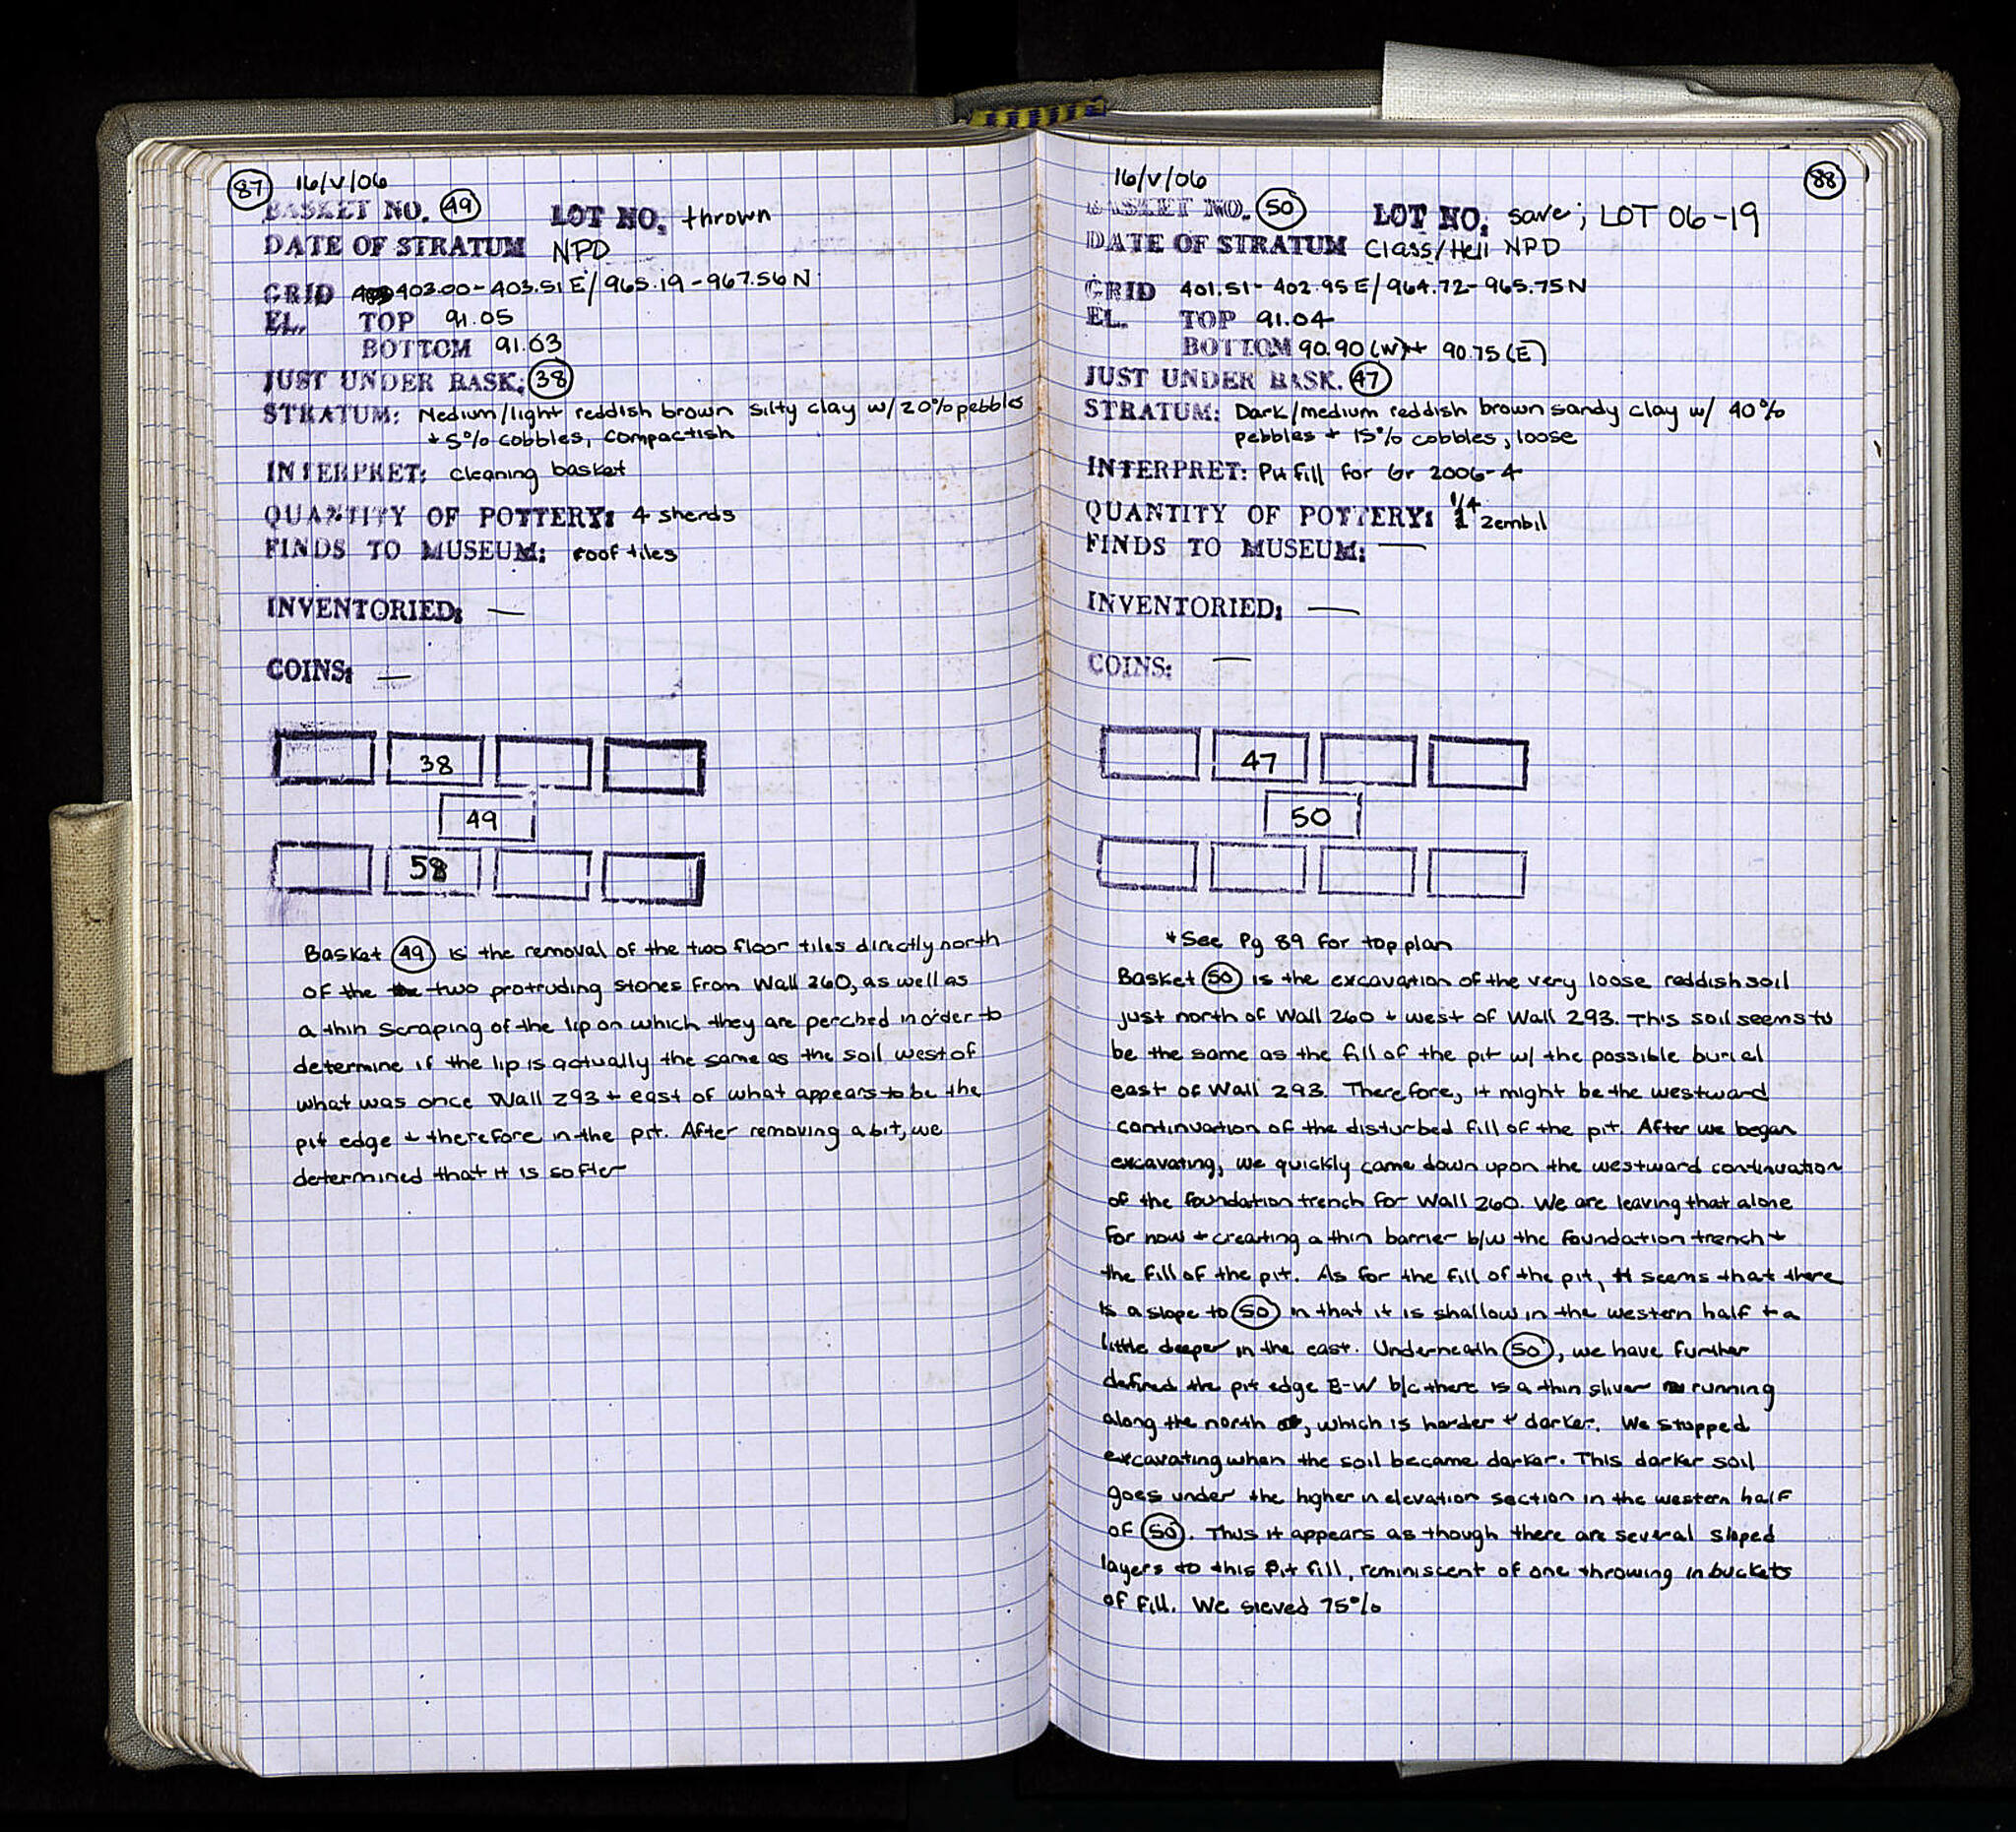 87
16/V/06
BASKET NO. 49 LOT NO. thrown
DATE OF STRATUM NPD
GRID 403.00-403.51 E/965.19-967.56 N
EL. TOP 91.05
BOTTOM 91.03
JUST UNDER BASK. 38
STRATUM: Medium/light reddish brown silty clay w/ 20% pebbles
+ 5% cobbles, compactish
INTERPRET: cleaning basket
QUANTITY OF POTTERY: 4 sherds
FINDS TO MUSEUM: roof tiles
INVENTORIED: —
COINS: —
38
49
58
Basket 49 is the removal of the two floor tiles directly north
of the two protruding stones from Wall 260, as well as
a thin scraping of the lip on which they are perched in order to
determine if the lip is actually the same as the soil west of
what was once Wall 293 + east of what appears to be the
pit edge + therefore in the pit. After removing a bit, we
determined that it is softer
88
16/V/06
BASKET NO. 50 LOT NO. save; LOT 06-19
DATE OF STRATUM Class/Hell NPD
GRID 401.51-402.95 E/964.72-965.75 N
EL. TOP 91.04
BOTTOM 90.90 (W) + 90.75 (E)
JUST UNDER BASK. 47
STRATUM: Dark/medium reddish brown sandy clay w/ 40%
pebbles + 15% cobbles, loose
INTERPRET: Pit fill for Gr 2006-4
QUANTITY OF POTTERY: 1/4 zembil
FINDS TO MUSEUM: —
INVENTORIED: —
COINS: —
47
50
*See Pg 89 for top plan
Basket 50 is the excavation of the very loose reddish soil
just north of Wall 260 + west of Wall 293. This soil seems to
be the same as the fill of the pit w/ the possible burial
east of Wall 293. Therefore, it might be the westward
continuation of the disturbed fill of the pit. After we began
excavating, we quickly came down upon the westward continuation
of the foundation trench for Wall 260. We are leaving that alone
for now + creating a thin barrier b/w the foundation trench +
the fill of the pit. As for the fill of the pit, it seems that there
is a slope to 50 in that it is shallow in the western half + a
little deeper in the east. Underneath 50, we have further
defined the pit edge E-W b/c there is a thin sliver running
along the north, which is harder + darker. We stopped
excavating when the soil became darker. This darker soil
goes under the higher in elevation section in the western half
of 50. Thus it appears as though there are several sloped
layers to this pit fill, reminiscent of one throwing in buckets
of fill. We sieved 75%